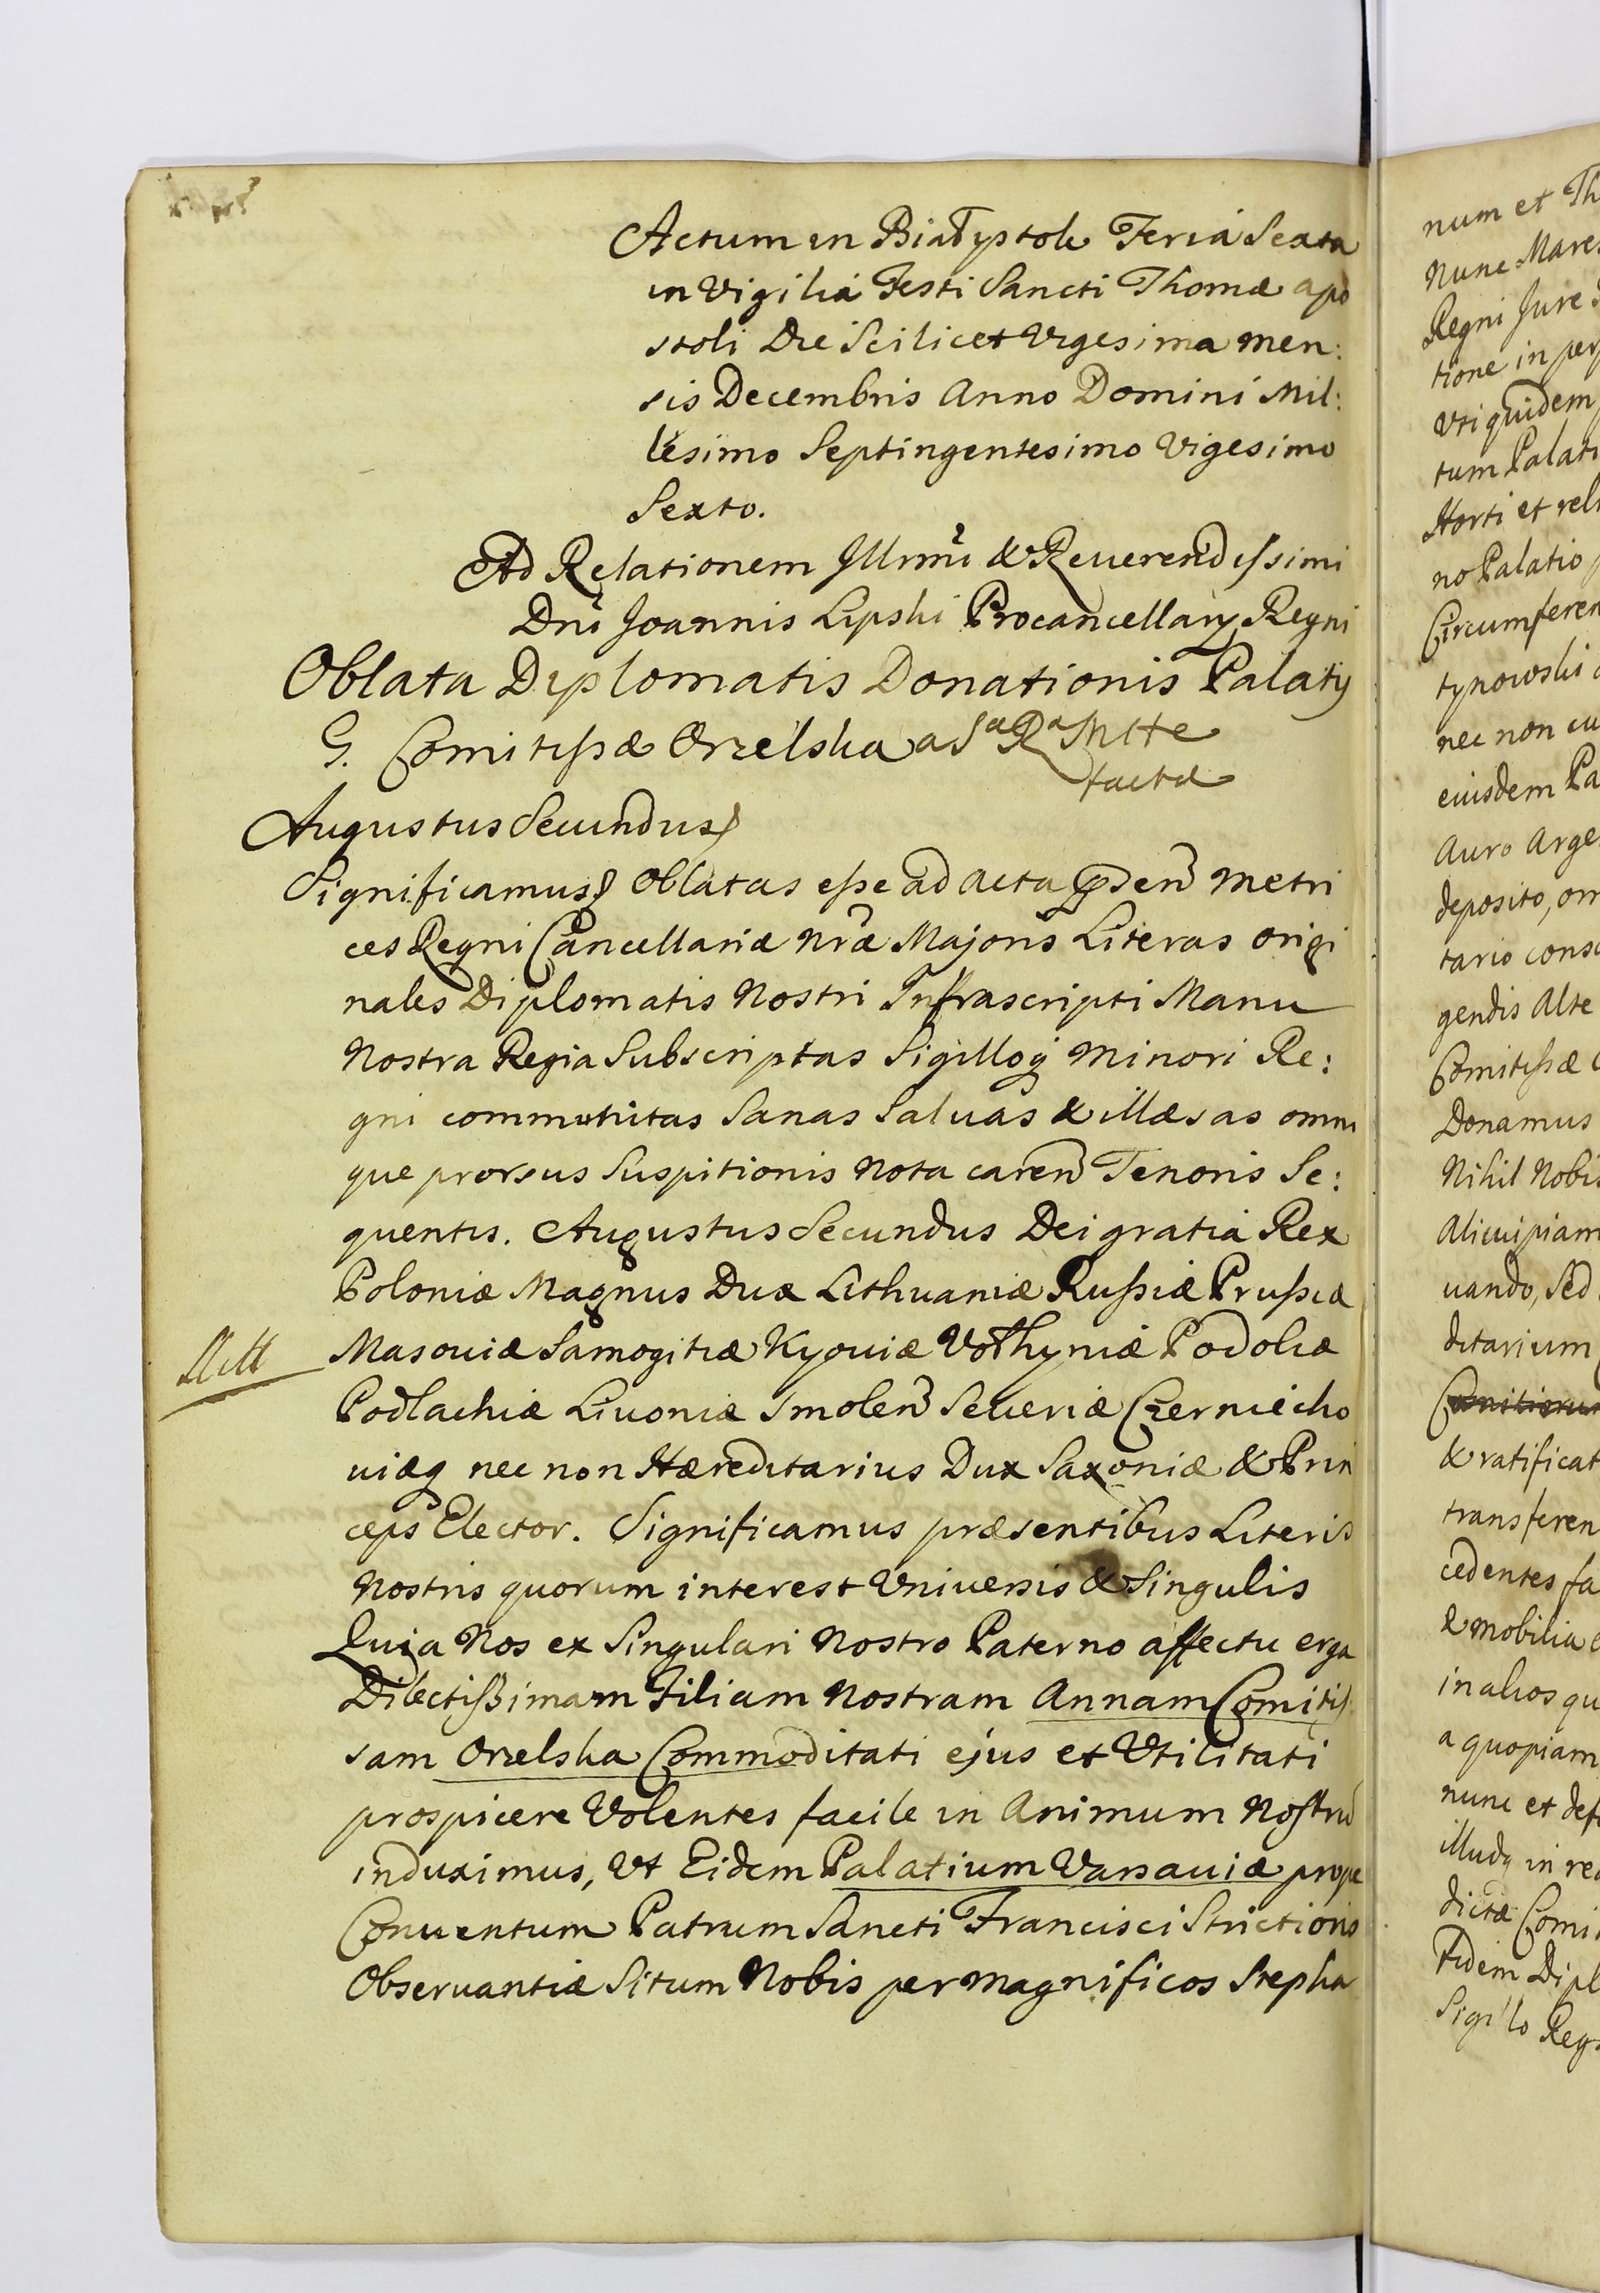 Actum in Białystoku Feriâ Sexta
in Vigiliâ Festi Sancti Thomæ apo
stoli Die Scilicet Vigesima men:
sis Decembris Anno Domini Mil:
lesimo Septingentesimo Vigesimo
Sexto.
Ad Relationem Jllrmi & Reuerendissimi
Dni Joannis Lipski Procancellary Regni
Oblata Diplomatis Donationis Palatij
G. Comitissæ Orzelska a Sa Ra Mtte
factæ
Augustus Secundus
Significamus Oblatas esse ad acta metri
ces Regni Cancellariæ nræ Majoris Literas origi
nales Diplomatis Nostri Infrascripti Manu
Nostra Regia Subscriptas Sigilloq minori Re:
gni communitas Sanas Saluas & illæsas omni
que prorsus Suspitionis Nota caren Tenoris Se:
quentis. Augustus Secundus Dei gratia Rex
Poloniæ Magnus Dux Lithuaniæ Russiæ Prussiæ
Masouiæ Samogitiæ Kyouiæ Volhyniæ Podoliæ
Podlachiæ Liuoniæ Smolen Seueriæ Czerniecho
uiæq nec non Hæreditarius Dux Saxoniæ & Prin
ceps Elector. Significamus præsentibus Literis
Nostris quorum interest Vniuersis & Singulis
Quia Nos ex Singulari Nostro Paterno affectu erga
Dilectissimam Filiam Nostram Annam Comitis
sam Orzelska Commoditati ejus et Vtilitati
prospicere Volentes facile in Animum Nostrū
induximus, Vt Eidem Palatium Varsauiæ prope
Conuentum Patrum Sancti Francisci Strictioris
Obseruantiæ Situm Nobis per magnificos Stepha
num et Th
Nunc Mares
Regni Jure
tione in perp
Vti quidem
tum Palati
Horti et reli
no Palatio
Circumferen
tynowski
nec non cu
eiusdem Pa
Auro Arge
deposito, om
tario cons
gendis Alte
Comitissæ
Donamus
Nihil Nobis
Alicuipiam
uando, Sed
ditarium
& ratificat
transferen
cedentes fa
& mobilia
in alios qu
a quopiam
nunc et def
illudq in re
dictæ Comi
Fidem Dipl
Sigillo Reg